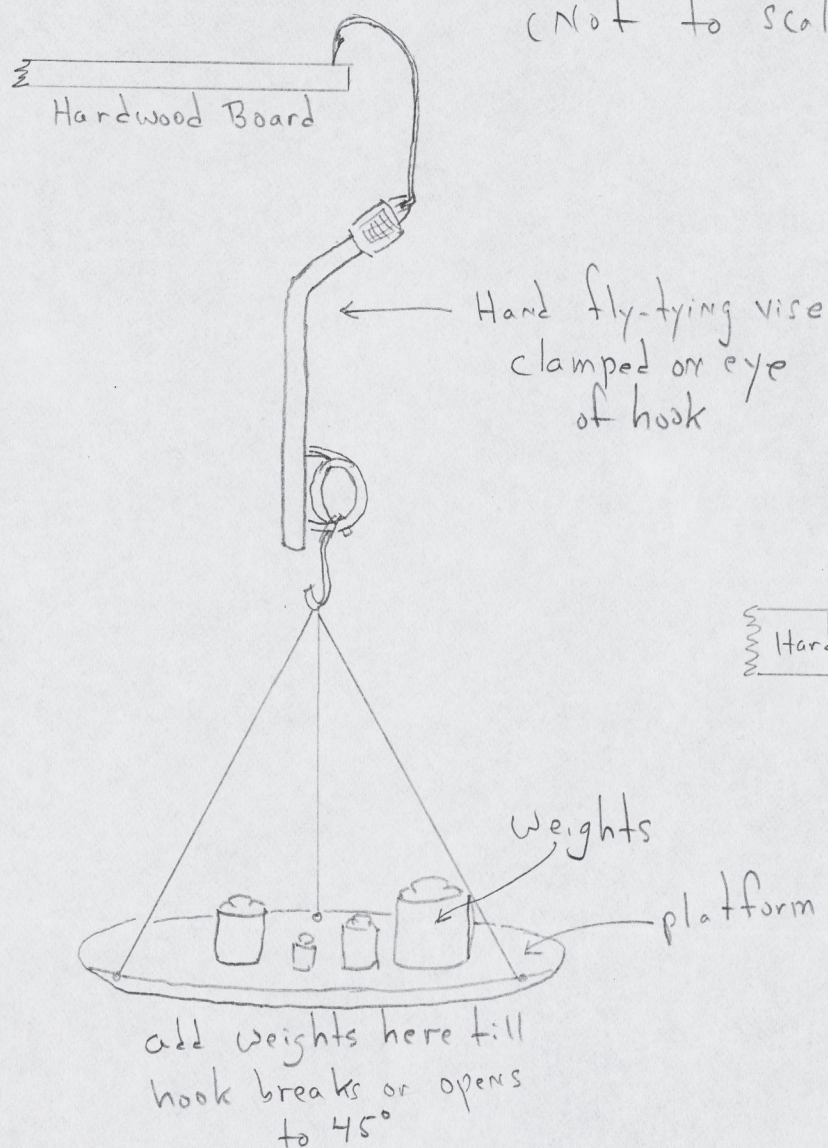 (Not to scal
Hardwood Board
Hand fly-tying vise
clamped on eye
of hook
Hard
weights
platform
add weights here till
hook breaks or opens
to 45°